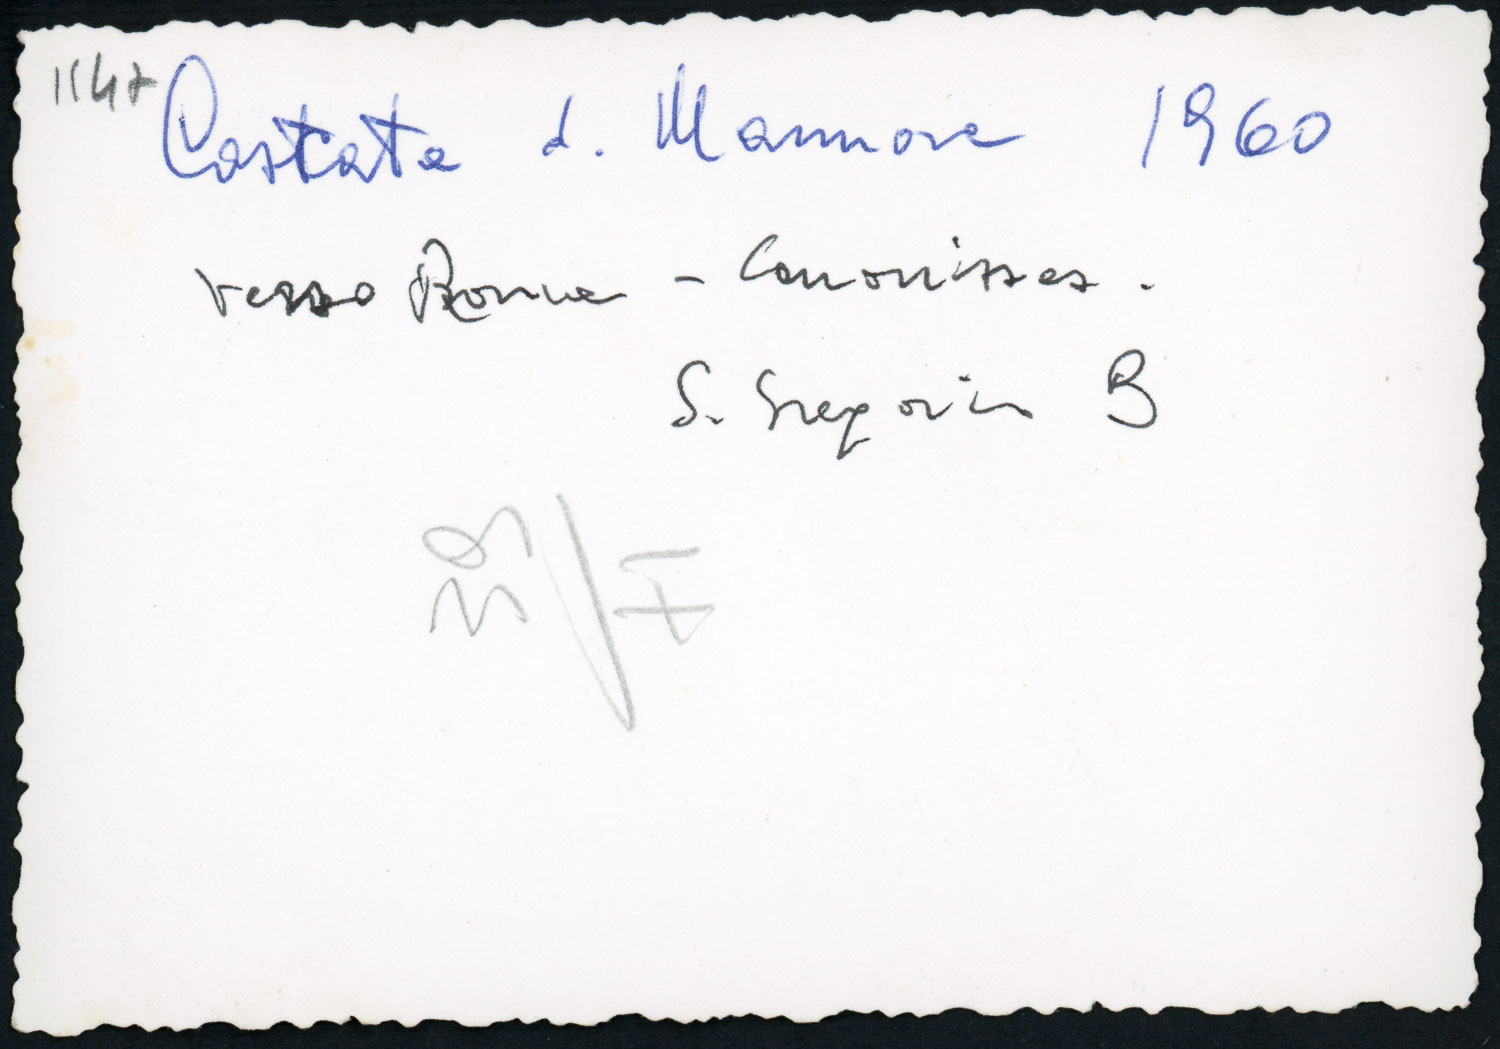 1147
Castata d. Marmore 1960
verso Roma - Canonisses.
S. Gregorio B